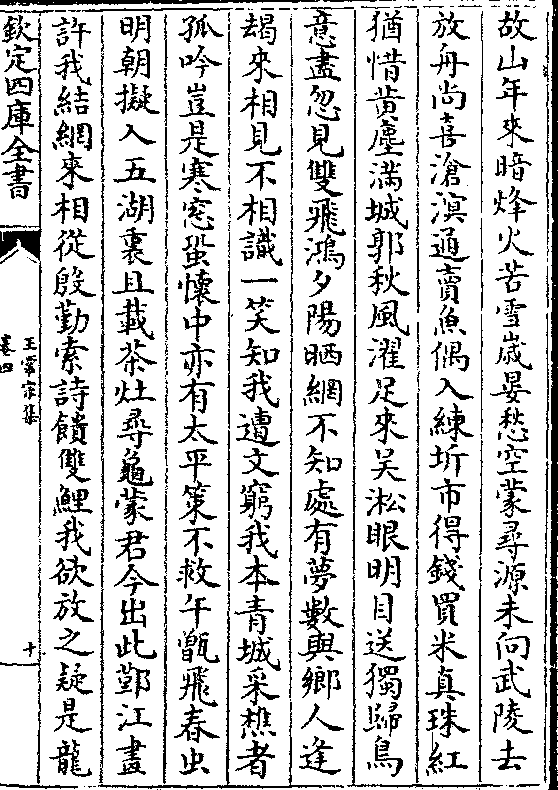 故山年來暗烽火苦雪歲晏愁空蒙尋源未向武陵去
放舟尚喜滄溟通賣魚偶入練圻市得錢買米真珠紅
猶惜黄塵滿城郭秋風濯足來吴淞眼明目送獨歸鳥
意盡忽見雙飛鴻夕陽晒網不知處有夢數與鄉人逢
朅來相見不相識一笑知我遭文窮我本青城采樵者
孤吟豈是寒窓蛩懷中亦有太平策不救午甑飛春虫
明朝擬入五湖裏且載茶灶尋龜蒙君今出此鄞江畫
許我結網來相從殷勤索詩饋雙鯉我欲放之疑是龍
欽定四庫全書
王常宗集
卷四
十